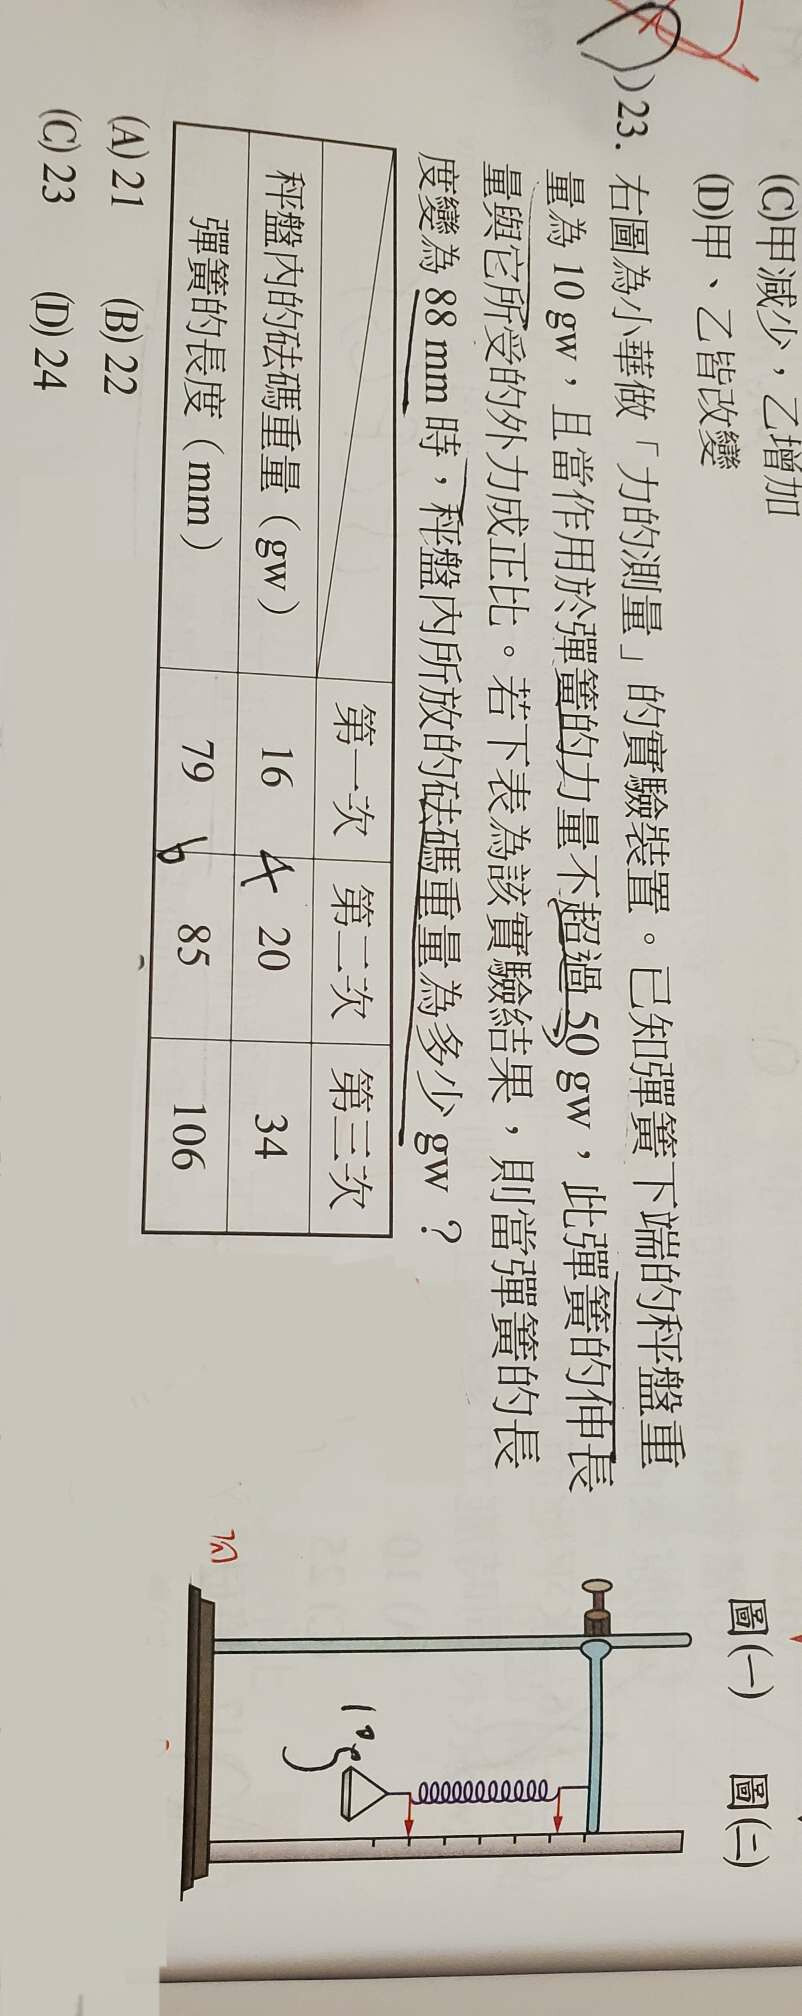 (C)甲減少，乙增加
(D)甲、乙皆改變
圖(一) 圖(二)
)23. 右圖為小華做「力的測量」的實驗裝置。已知彈簧下端的秤盤重
量為 10 gw，且當作用於彈簧的力量不超過 50 gw，此彈簧的伸長
量與它所受的外力成正比。若下表為該實驗結果，則當彈簧的長
度變為 88 mm 時，秤盤內所放的砝碼重量為多少 gw？
第一次 第二次 第三次
秤盤內的砝碼重量（gw） 16 4 20 34
彈簧的長度（mm） 79 6 85 106
(A) 21 (B) 22
(C) 23 (D) 24